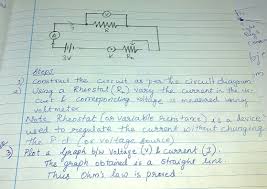 V
R
A
3V
K
Rh
Steps
1) Construct the circuit as per the circuit diagram
2) Using a Rheostat (Rh) vary the current in the cir-
cuit & corresponding voltage is measured using
voltmeter
Note Rheostat (or variable resistance) is a device
used to regulate the current without changing
the P.d (or voltage source)
3) Plot a graph b/w voltage (V) & current (I).
The graph obtained is a straight line.
Thus Ohm's law is proved